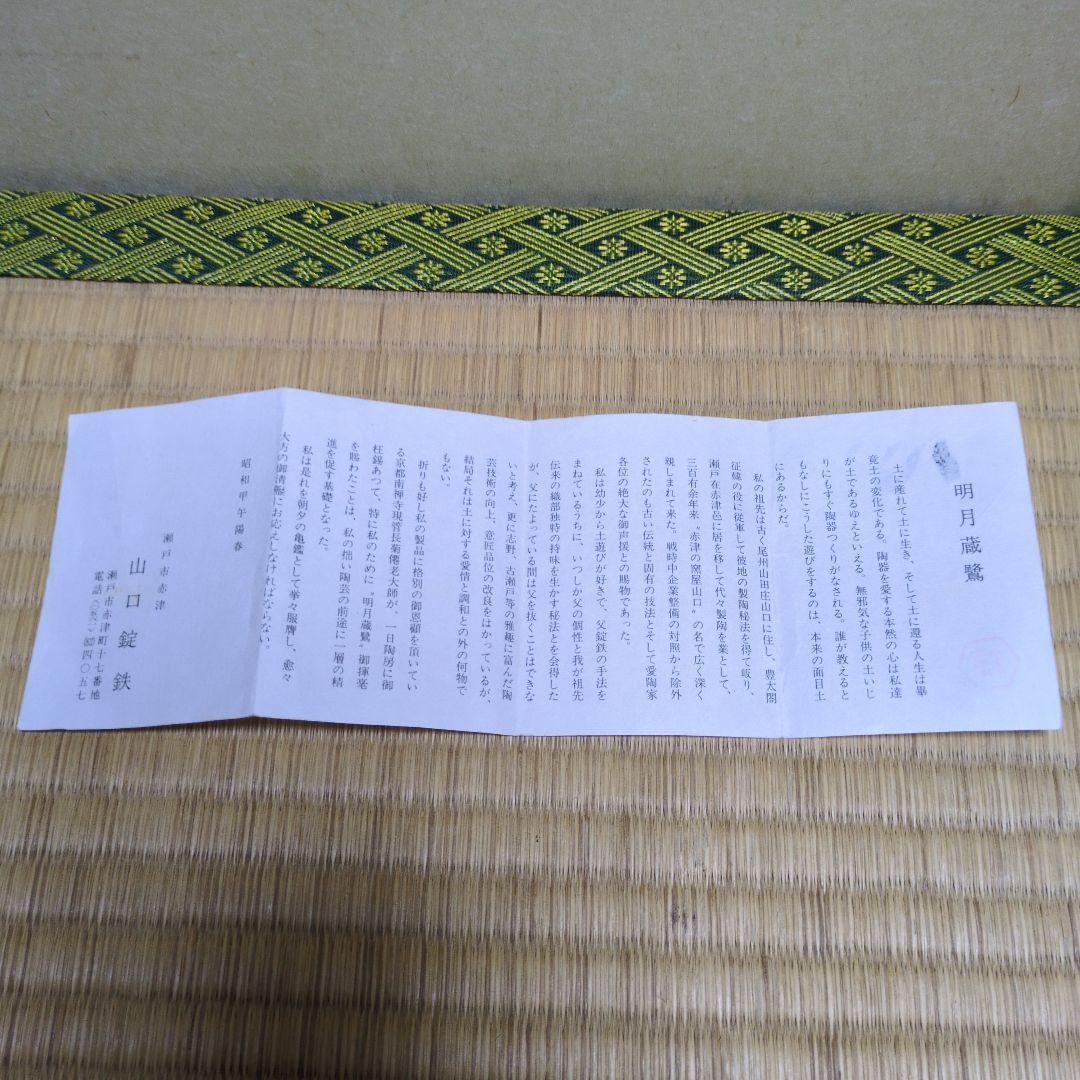 明月蔵鷺
土に産れて土に生き、そして土に還る人生は畢
竟土の変化である。陶器を愛する本然の心は私達
が土であるゆえといえる。無邪気な子供の土いじ
りにもすぐ陶器つくりがなされる。誰が教えると
もなしにこうした遊びをするのは、本来の面目土
にあるからだ。
私の祖先は古く尾州山田庄山口に住し、豊太閤
征韓の役に従軍して彼地の製陶秘法を得て皈り、
瀬戸在赤津邑に居を移して代々製陶を業として、
三百有余年来〝赤津の窯屋山口〟の名で広く深く
親しまれて来た。戦時中企業整備の対照から除外
されたのも古い伝統と固有の技法とそして愛陶家
各位の絶大な御声援との賜物であった。
私は幼少から土遊びが好きで、父錠鉄の手法を
まねているうちに、いつしか父の個性と我が祖先
伝来の織部独特の持味を生かす秘法とを会得した
が、父にたよっている間は父を抜くことはできな
いと考え、更に志野、古瀬戸等の雅趣に富んだ陶
芸技術の向上、意匠品位の改良をはかっているが、
結局それは土に対する愛情と調和との外の何物で
もない。
折りも好し私の製品に格別の御恩顧を頂いてい
る京都南禅寺現管長菊僊老大師が、一日陶房に御
枉錫あつて、特に私のために〝明月蔵鷺〟御揮毫
を賜わたことは、私の拙い陶芸の前途に一層の精
進を促す基礎となった。
私は是れを朝夕の亀鑑として拳々服膺し、愈々
大方の御清鑑にお応えしなければならない。
昭和甲午陽春
瀬戸市赤津
山口錠鉄
瀬戸市赤津町十七番地
四〇五七